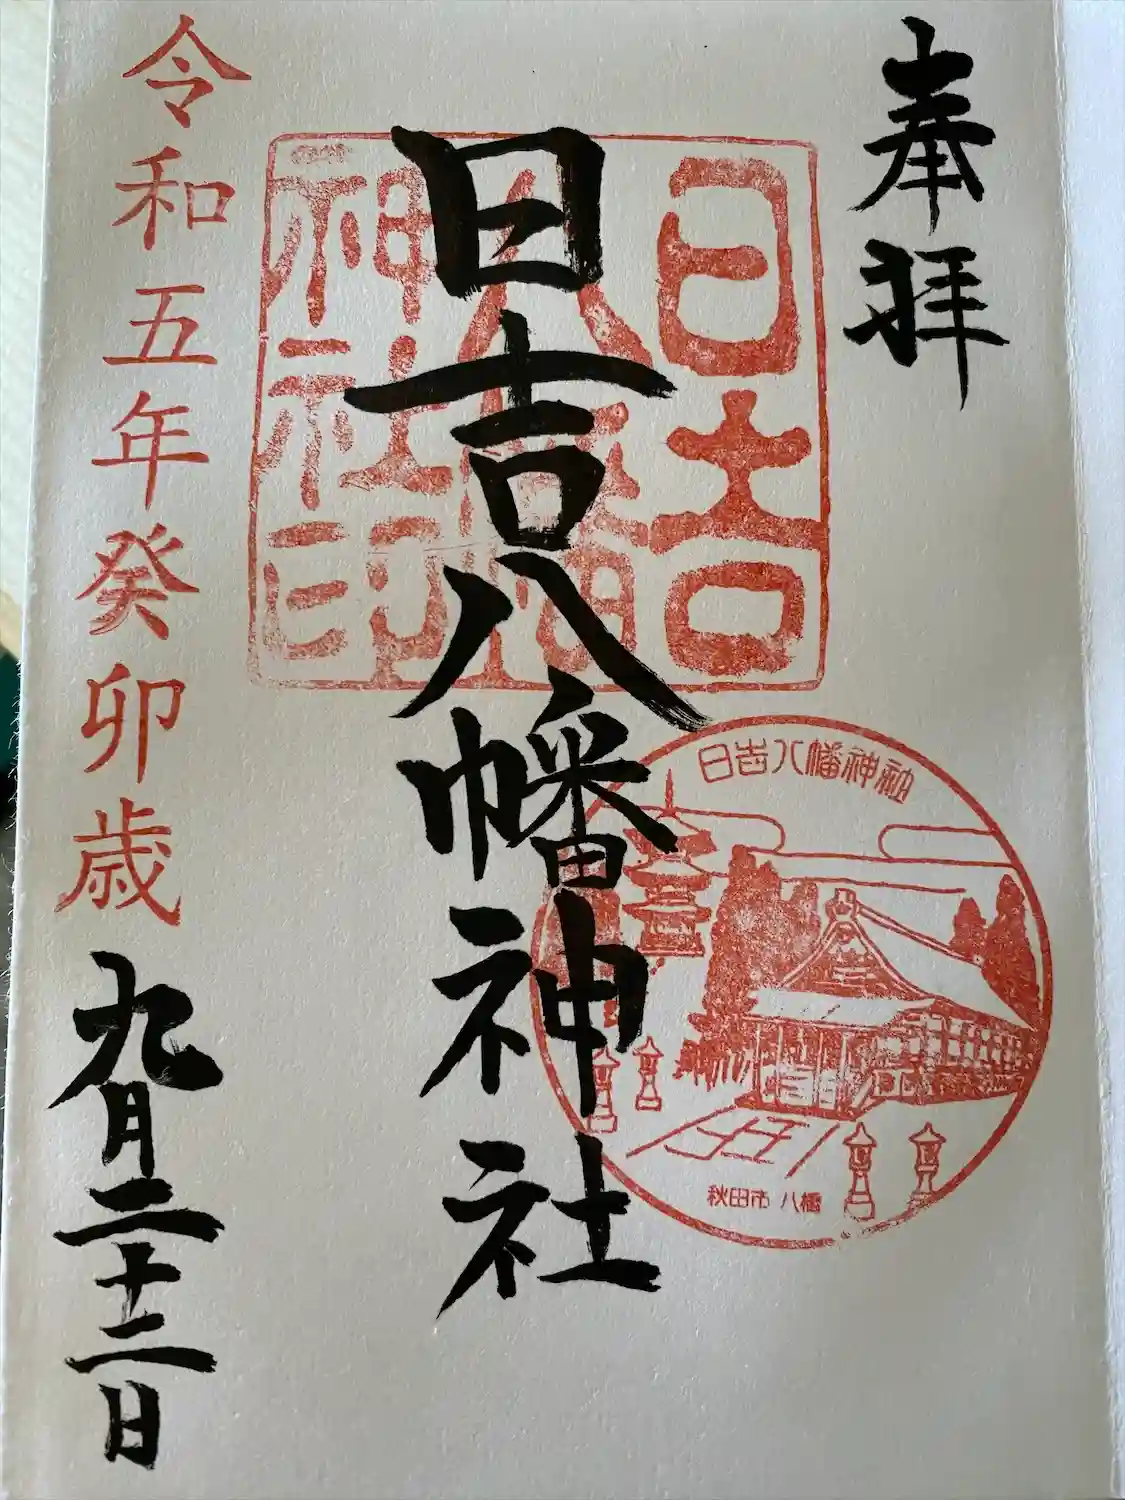 奉拝
日吉八幡神社
日吉
八幡
神社印
日吉八幡神社
秋田市 八橋
令和五年癸卯歳九月二十二日